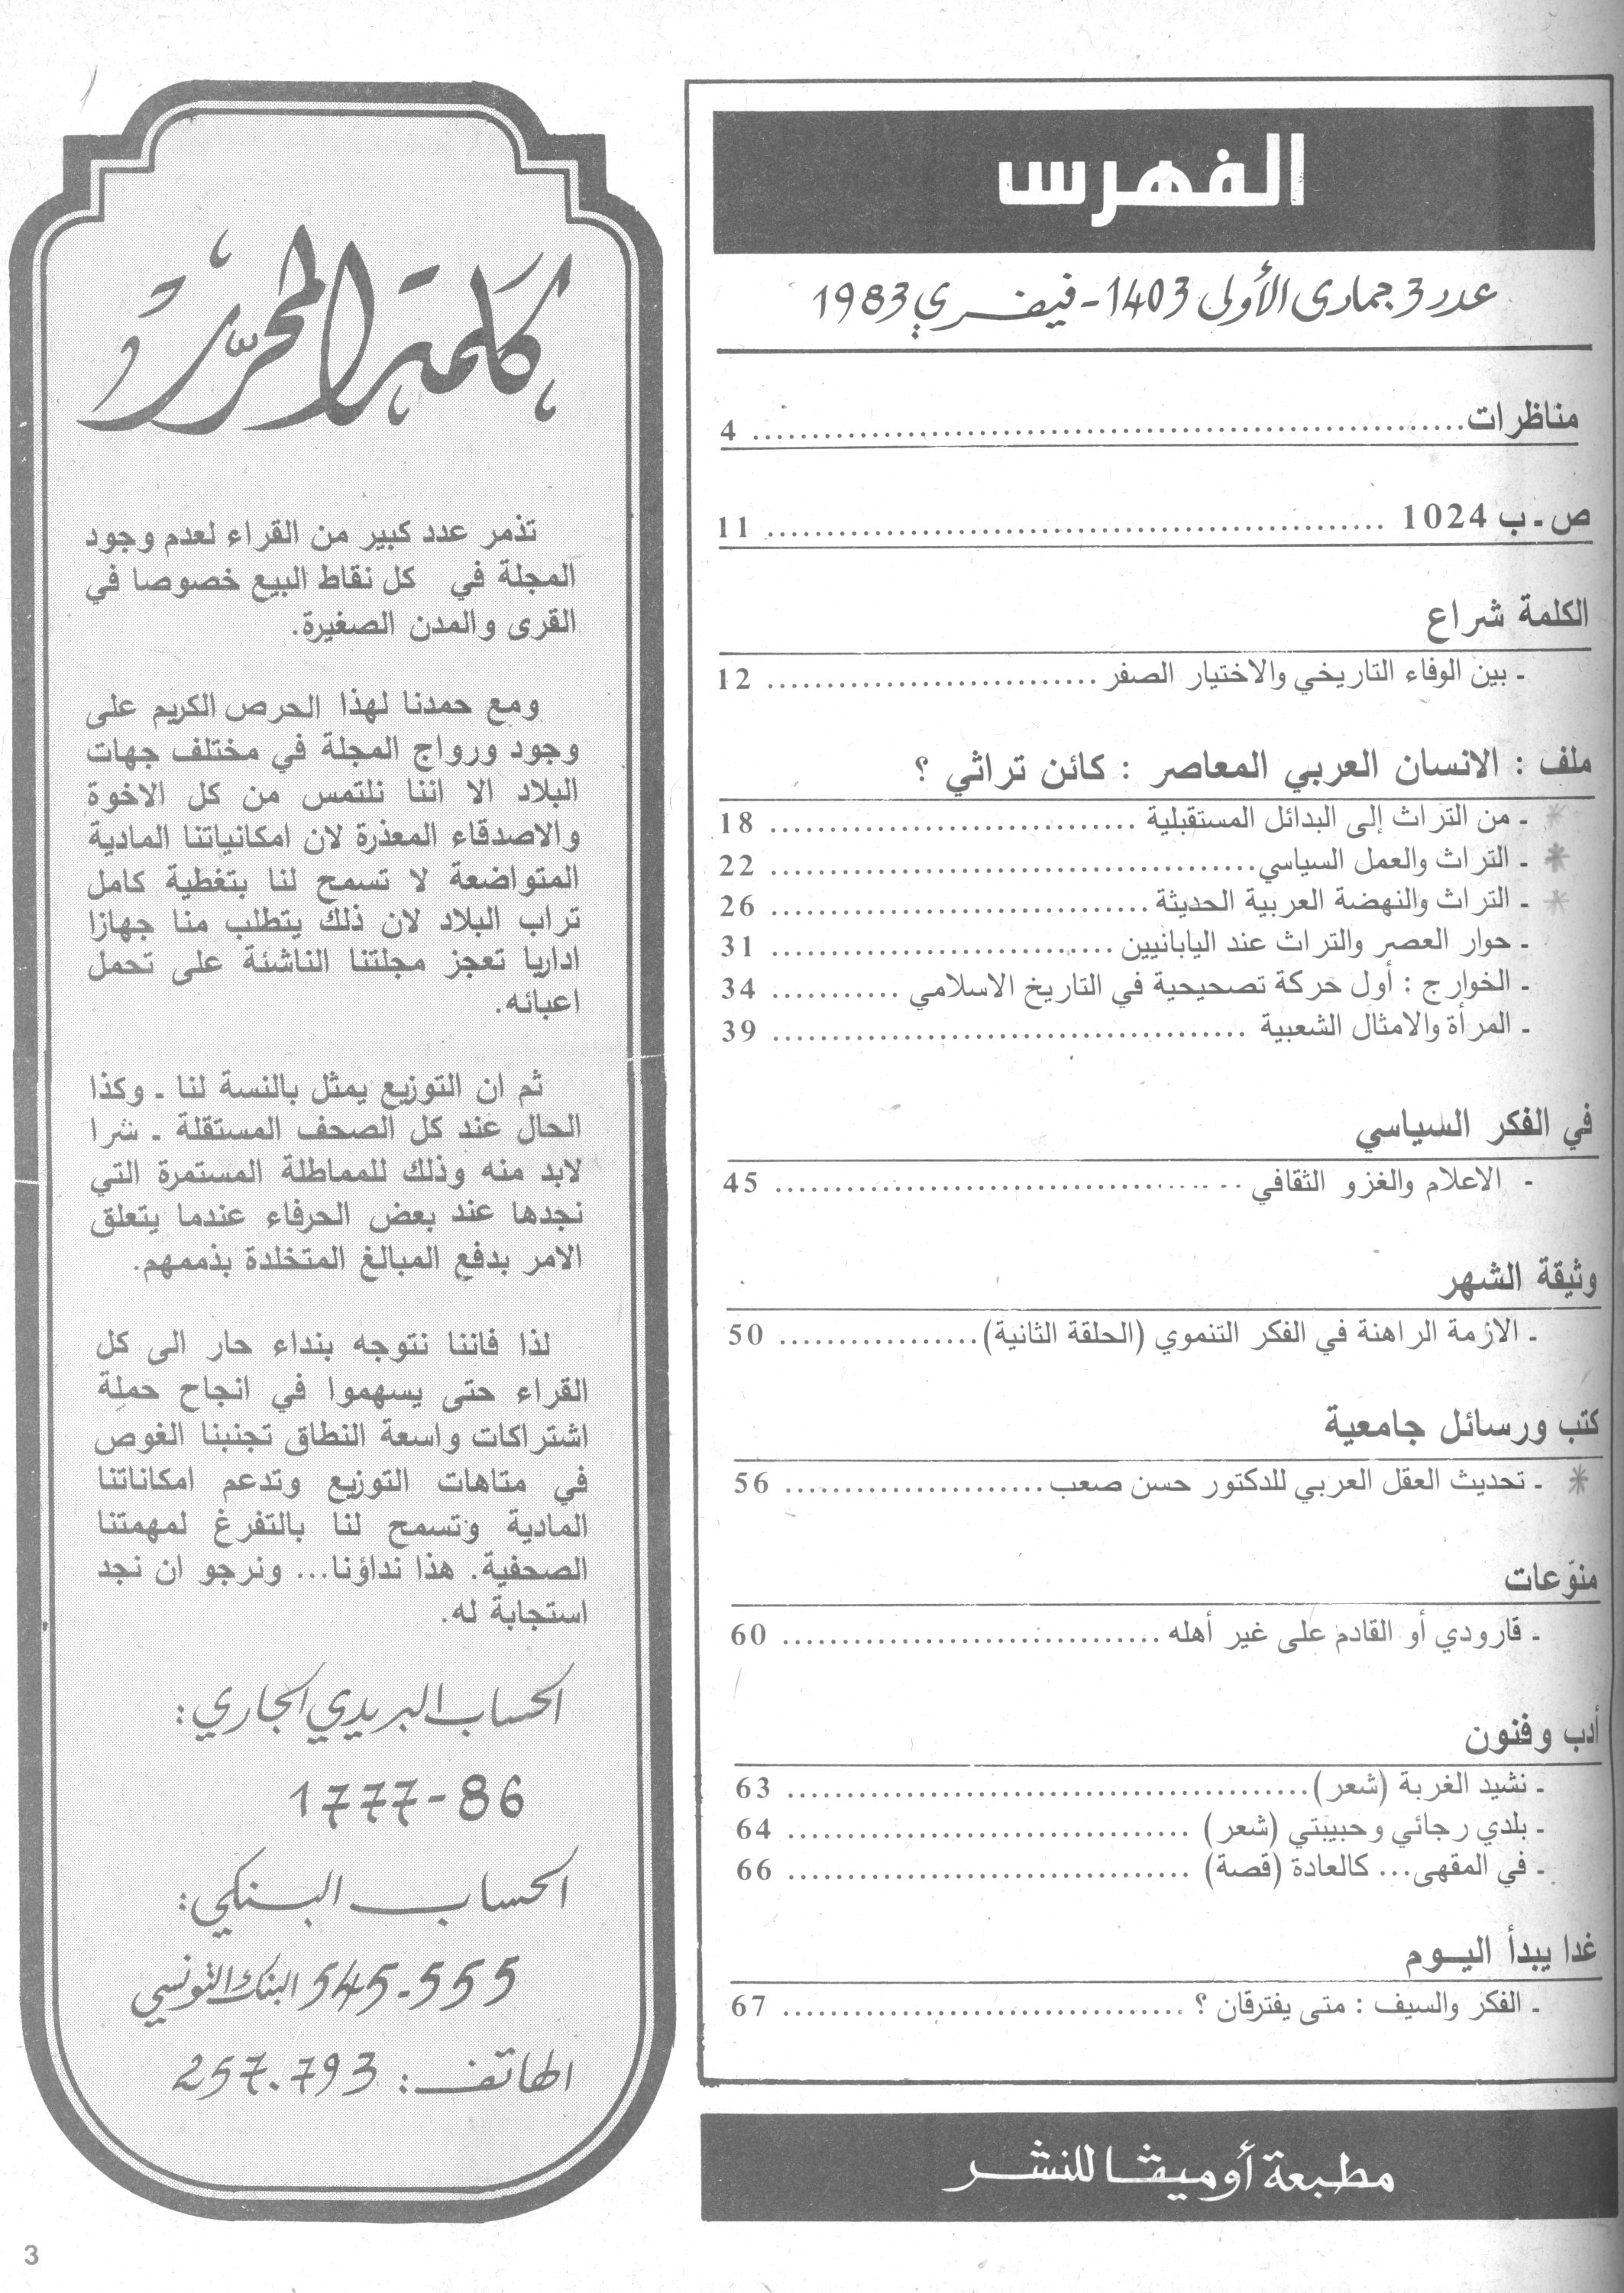 الفهرس
عدد 3 جمادى الأولى 1403 - فيفري 1983
مناظرات ........ 4
ص ـ ب 1024 ........ 11
الكلمة شراع
ـ بين الوفاء التاريخي والاختيار الصفر ........ 12
ملف : الانسان العربي المعاصر : كائن تراثي ؟
ـ من التراث إلى البدائل المستقبلية ........ 18
ـ التراث والعمل السياسي ........ 22
ـ التراث والنهضة العربية الحديثة ........ 26
ـ حوار العصر والتراث عند اليابانيين ........ 31
ـ الخوارج : أول حركة تصحيحية في التاريخ الاسلامي ........ 34
ـ المرأة والامثال الشعبية ........ 39
في الفكر السياسي
ـ الاعلام والغزو الثقافي ........ 45
وثيقة الشهر
ـ الازمة الراهنة في الفكر التنموي (الحلقة الثانية) ........ 50
كتب ورسائل جامعية
ـ تحديث العقل العربي للدكتور حسن صعب ........ 56
منوّعات
ـ قارودي أو القادم على غير أهله ........ 60
أدب وفنون
ـ نشيد الغربة (شعر) ........ 63
ـ بلدي رجائي وحبيبتي (شعر) ........ 64
ـ في المقهى... كالعادة (قصة) ........ 66
غدا يبدأ اليـوم
ـ الفكر والسيف : متى يفترقان ؟ ........ 67
مطبعة أوميڤا للنشر
كلمة المحرّر
تذمر عدد كبير من القراء لعدم وجود
المجلة في كل نقاط البيع خصوصا في
القرى والمدن الصغيرة.
ومع حمدنا لهذا الحرص الكريم على
وجود ورواج المجلة في مختلف جهات
البلاد الا اننا نلتمس من كل الاخوة
والاصدقاء المعذرة لان امكانياتنا المادية
المتواضعة لا تسمح لنا بتغطية كامل
تراب البلاد لان ذلك يتطلب منا جهازا
اداريا تعجز مجلتنا الناشئة على تحمل
اعبائه.
ثم ان التوزيع يمثل بالنسة لنا ـ وكذا
الحال عند كل الصحف المستقلة ـ شرا
لابد منه وذلك للمماطلة المستمرة التي
نجدها عند بعض الحرفاء عندما يتعلق
الامر بدفع المبالغ المتخلدة بذممهم.
لذا فاننا نتوجه بنداء حار الى كل
القراء حتى يسهموا في انجاح حملة
اشتراكات واسعة النطاق تجنبنا الغوص
في متاهات التوزيع وتدعم امكاناتنا
المادية وتسمح لنا بالتفرغ لمهمتنا
الصحفية. هذا نداؤنا... ونرجو ان نجد
استجابة له.
الحساب البريدي الجاري:
1777-86
الحساب البنكي:
545-555 البنك التونسي
الهاتف: 257.793
3